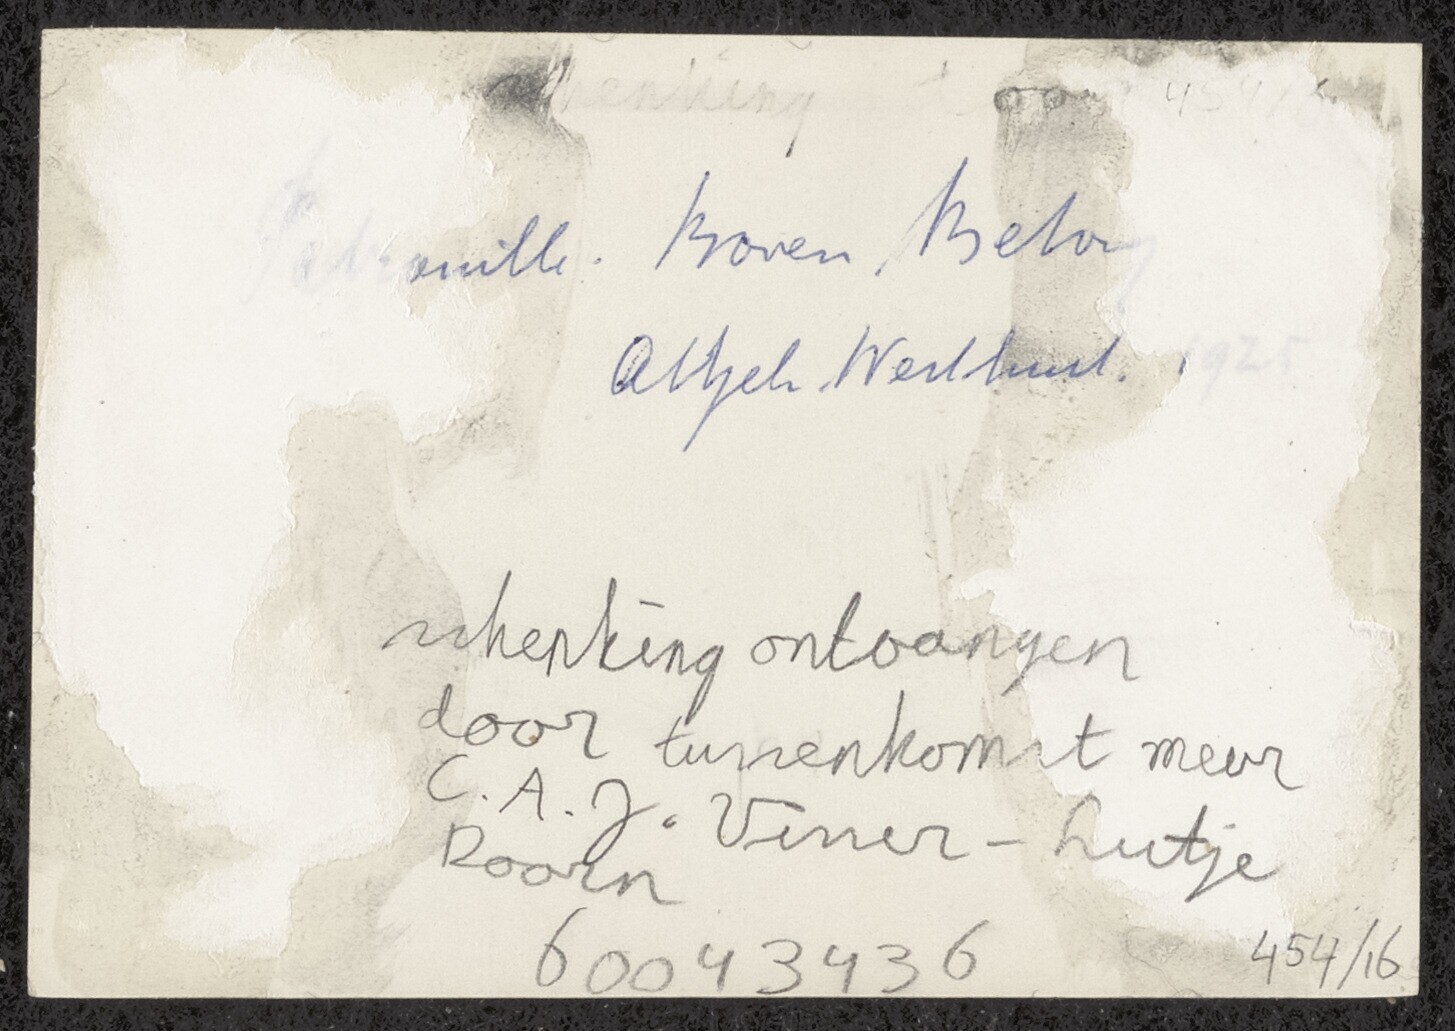 schenking door 454/16
Patrouille. Boven Beloy
Atjeh Westkust. 1925
schenking ontvangen
door tussenkomst mevr
C.A.J. Visser-Lutje
Doorn
60043436
454/16